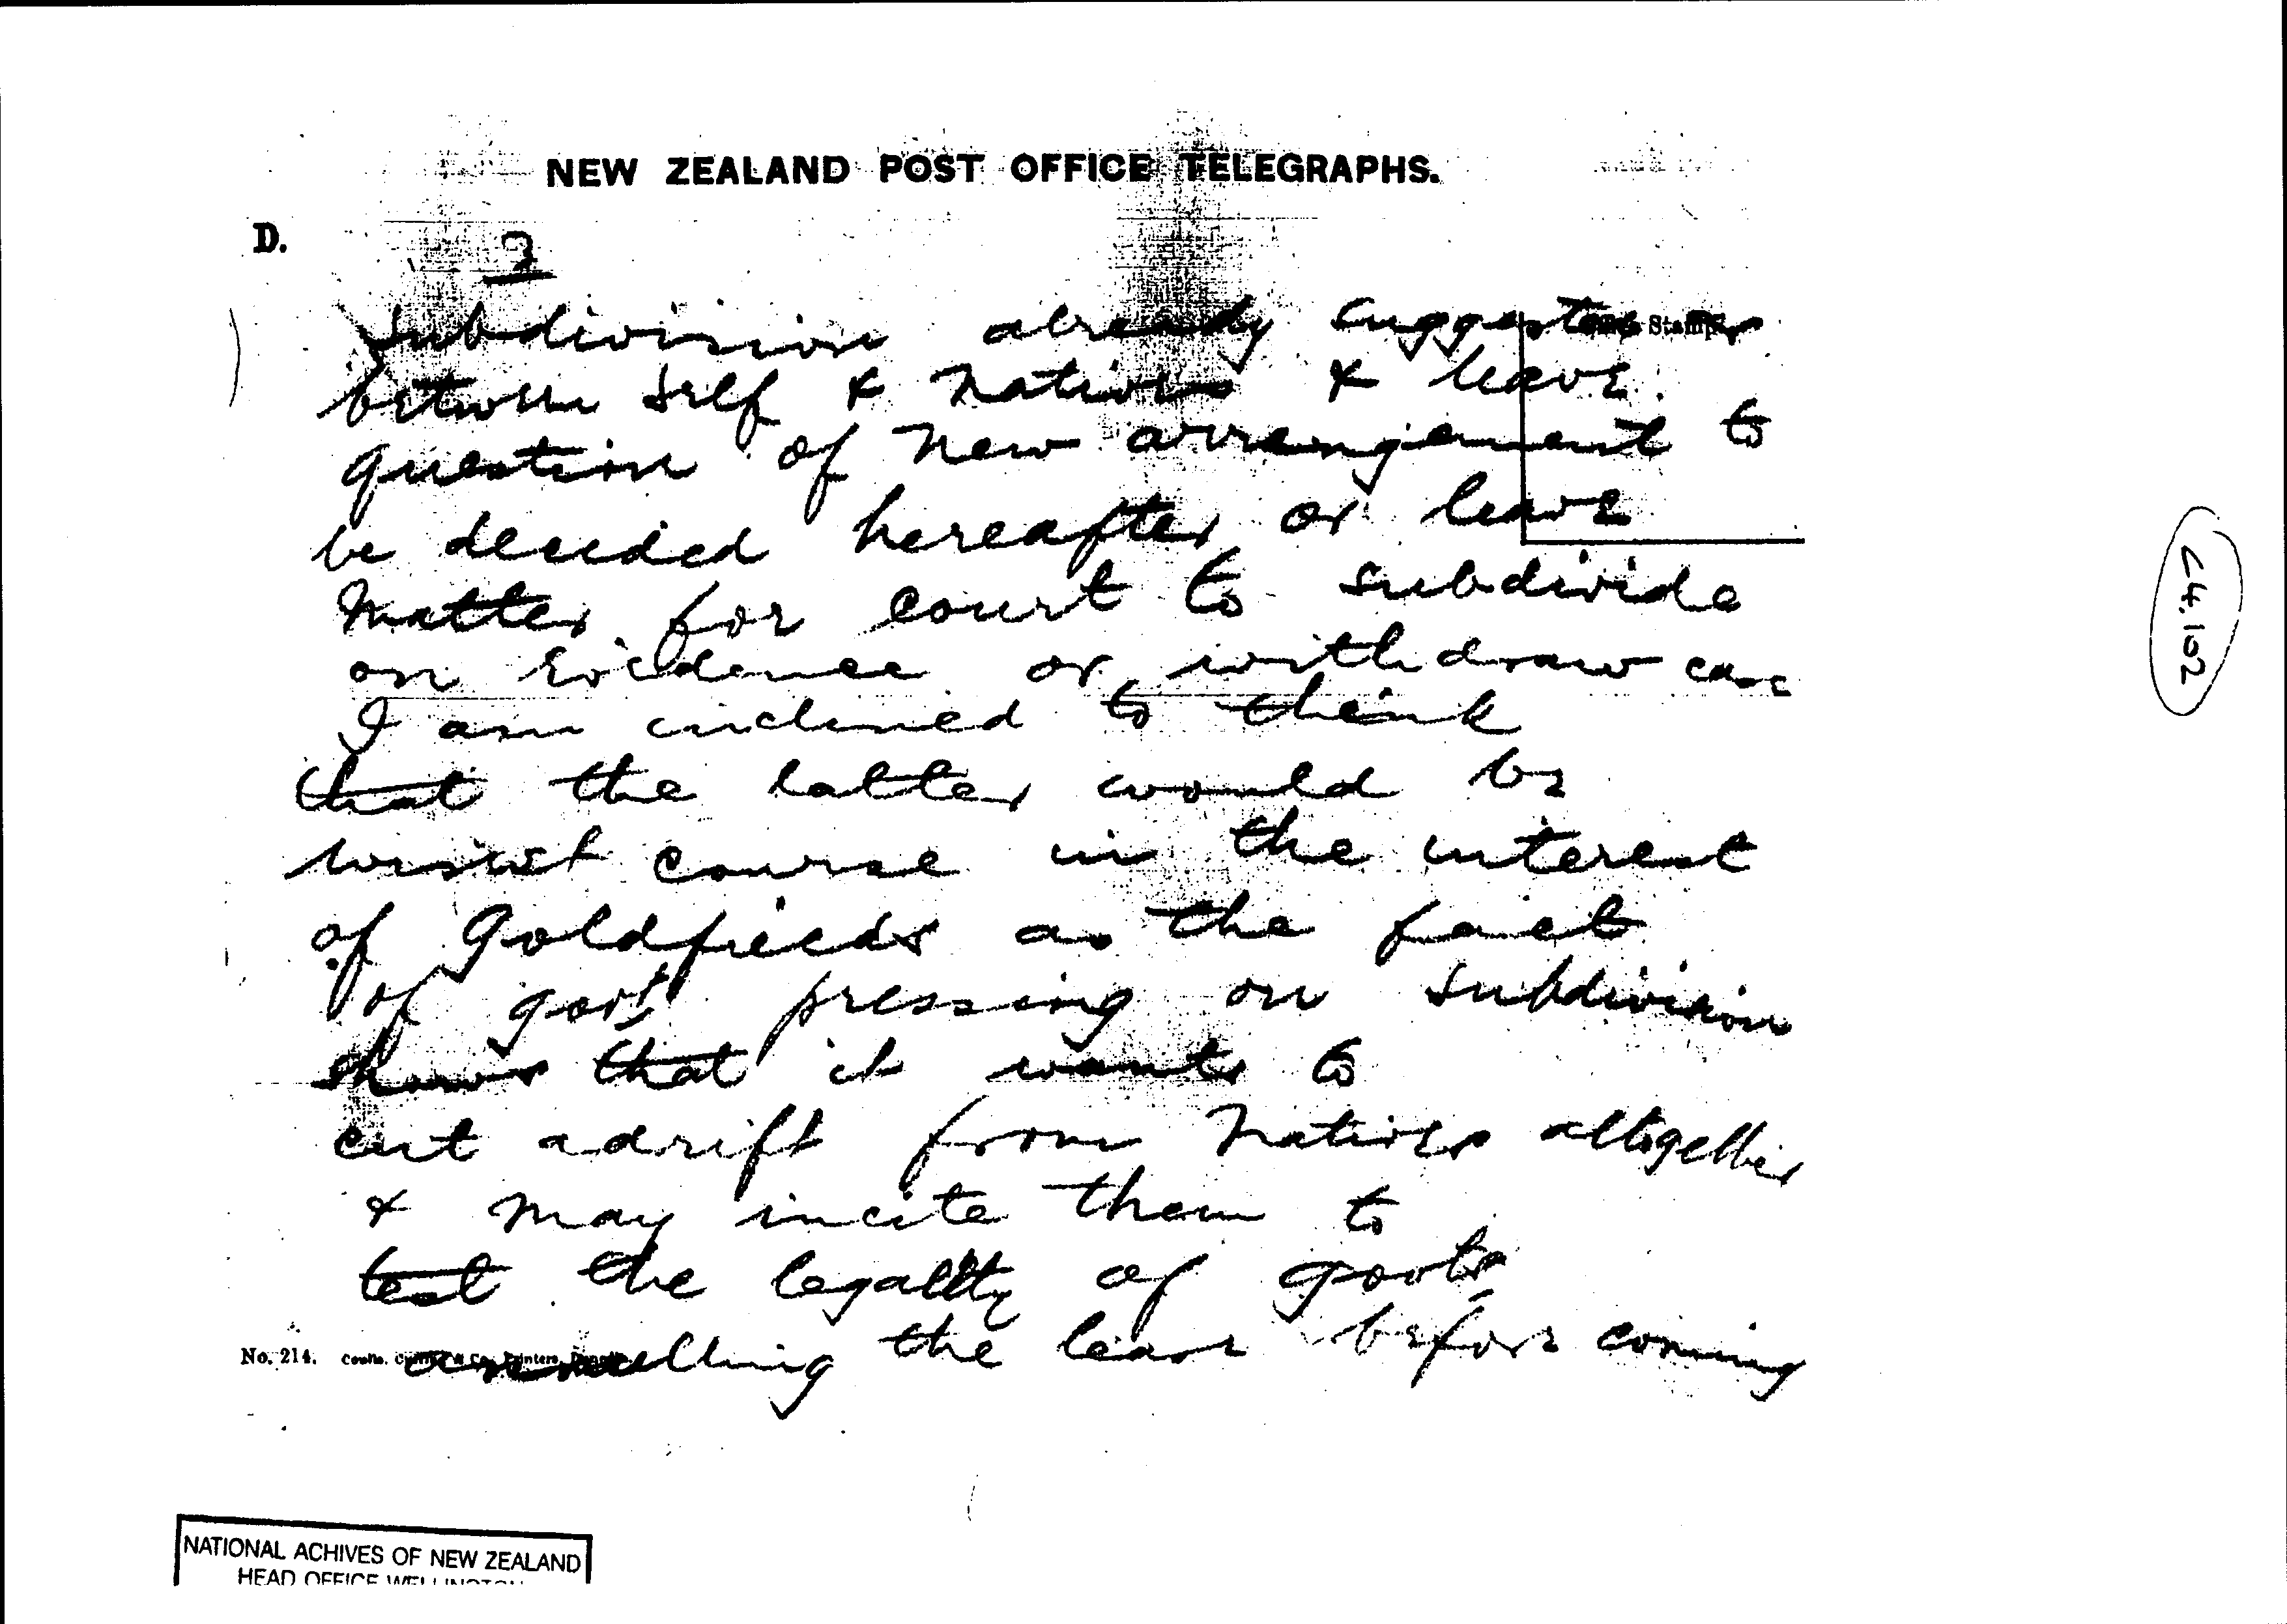 NEW ZEALAND POST OFFICE TELEGRAPHS.
D.
3
Office Stamp.
subdivision already suggested as
between self & natives & leave
question of new arrangement to
be decided hereafter or leave
matter for court to subdivide
on evidence or withdraw case
I am inclined to think
that the latter would be
wisest course in the interest
of Goldfields as the fact
of govt pressing on subdivision
shows that it wants to
cut adrift from natives altogether
& may incite them to
test the legality of govts
annulling the lease before coming
No. 214. Coulls, Culling & Co., Printers,
C4.102
NATIONAL ACHIVES OF NEW ZEALAND
HEAD OFFICE WELLINGTON